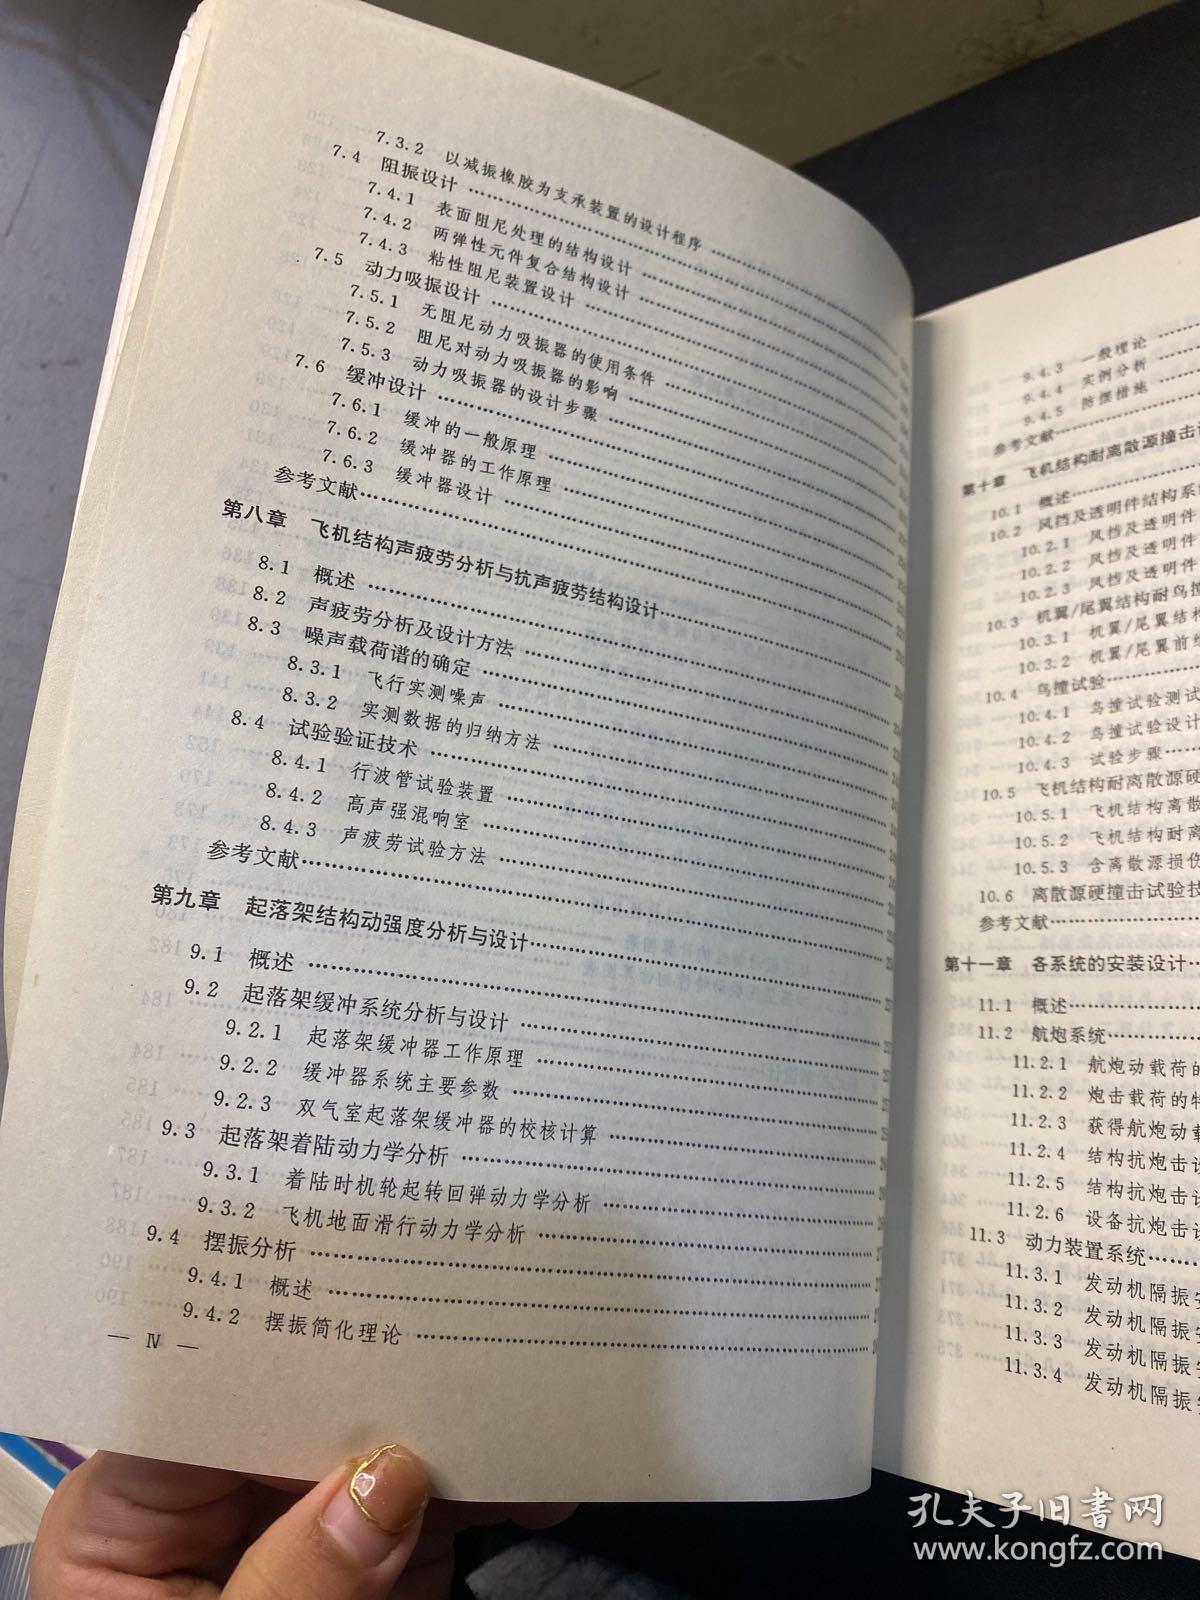 7.3.2 以减振橡胶为支承装置的设计程序
7.4 阻振设计
7.4.1 表面阻尼处理的结构设计
7.4.2 两弹性元件复合结构设计
7.4.3 粘性阻尼装置设计
7.5 动力吸振设计
7.5.1 无阻尼动力吸振器的使用条件
7.5.2 阻尼对动力吸振器的影响
7.5.3 动力吸振器的设计步骤
7.6 缓冲设计
7.6.1 缓冲的一般原理
7.6.2 缓冲器的工作原理
7.6.3 缓冲器设计
参考文献
第八章 飞机结构声疲劳分析与抗声疲劳结构设计
8.1 概述
8.2 声疲劳分析及设计方法
8.3 噪声载荷谱的确定
8.3.1 飞行实测噪声
8.3.2 实测数据的归纳方法
8.4 试验验证技术
8.4.1 行波管试验装置
8.4.2 高声强混响室
8.4.3 声疲劳试验方法
参考文献
第九章 起落架结构动强度分析与设计
9.1 概述
9.2 起落架缓冲系统分析与设计
9.2.1 起落架缓冲器工作原理
9.2.2 缓冲器系统主要参数
9.2.3 双气室起落架缓冲器的校核计算
9.3 起落架着陆动力学分析
9.3.1 着陆时机轮起转回弹动力学分析
9.3.2 飞机地面滑行动力学分析
9.4 摆振分析
9.4.1 概述
9.4.2 摆振简化理论
— Ⅳ —
9.4.3 一般理论
9.4.4 实例分析
9.4.5 防摆措施
参考文献
第十章 飞机结构耐离散源撞击
10.1 概述
10.2 风挡及透明件结构系
10.2.1 风挡及透明件
10.2.2 风挡及透明件
10.2.3 风挡及透明件
10.3 机翼/尾翼结构耐鸟撞
10.3.1 机翼/尾翼结构
10.3.2 机翼/尾翼前
10.4 鸟撞试验
10.4.1 鸟撞试验测试
10.4.2 鸟撞试验设计
10.4.3 试验步骤
10.5 飞机结构耐离散源硬
10.5.1 飞机结构离散
10.5.2 飞机结构耐离
10.5.3 含离散源损伤
10.6 离散源硬撞击试验技
参考文献
第十一章 各系统的安装设计
11.1 概述
11.2 航炮系统
11.2.1 航炮动载荷的
11.2.2 炮击载荷的特
11.2.3 获得航炮动载
11.2.4 结构抗炮击设
11.2.5 结构抗炮击设
11.2.6 设备抗炮击设
11.3 动力装置系统
11.3.1 发动机隔振安
11.3.2 发动机隔振安
11.3.3 发动机隔振安
11.3.4 发动机隔振
孔夫子旧书网
www.kongfz.com